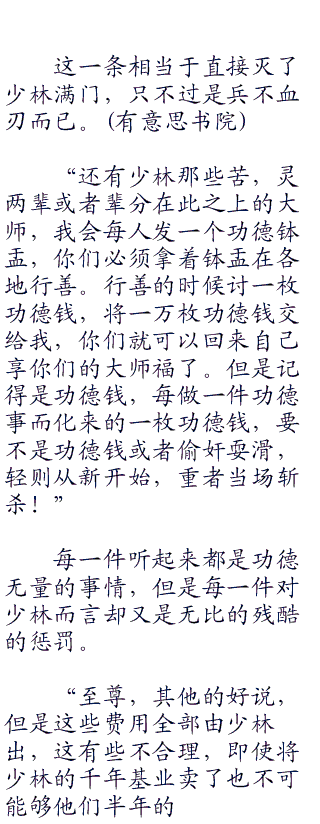 这一条相当于直接灭了
少林满门，只不过是兵不血
刃而已。(有意思书院)
“还有少林那些苦，灵
两辈或者辈分在此之上的大
师，我会每人发一个功德钵
盂，你们必须拿着钵盂在各
地行善。行善的时候讨一枚
功德钱，将一万枚功德钱交
给我，你们就可以回来自己
享你们的大师福了。但是记
得是功德钱，每做一件功德
事而化来的一枚功德钱，要
不是功德钱或者偷奸耍滑，
轻则从新开始，重者当场斩
杀！”
每一件听起来都是功德
无量的事情，但是每一件对
少林而言却又是无比的残酷
的惩罚。
“至尊，其他的好说，
但是这些费用全部由少林
出，这有些不合理，即使将
少林的千年基业卖了也不可
能够他们半年的